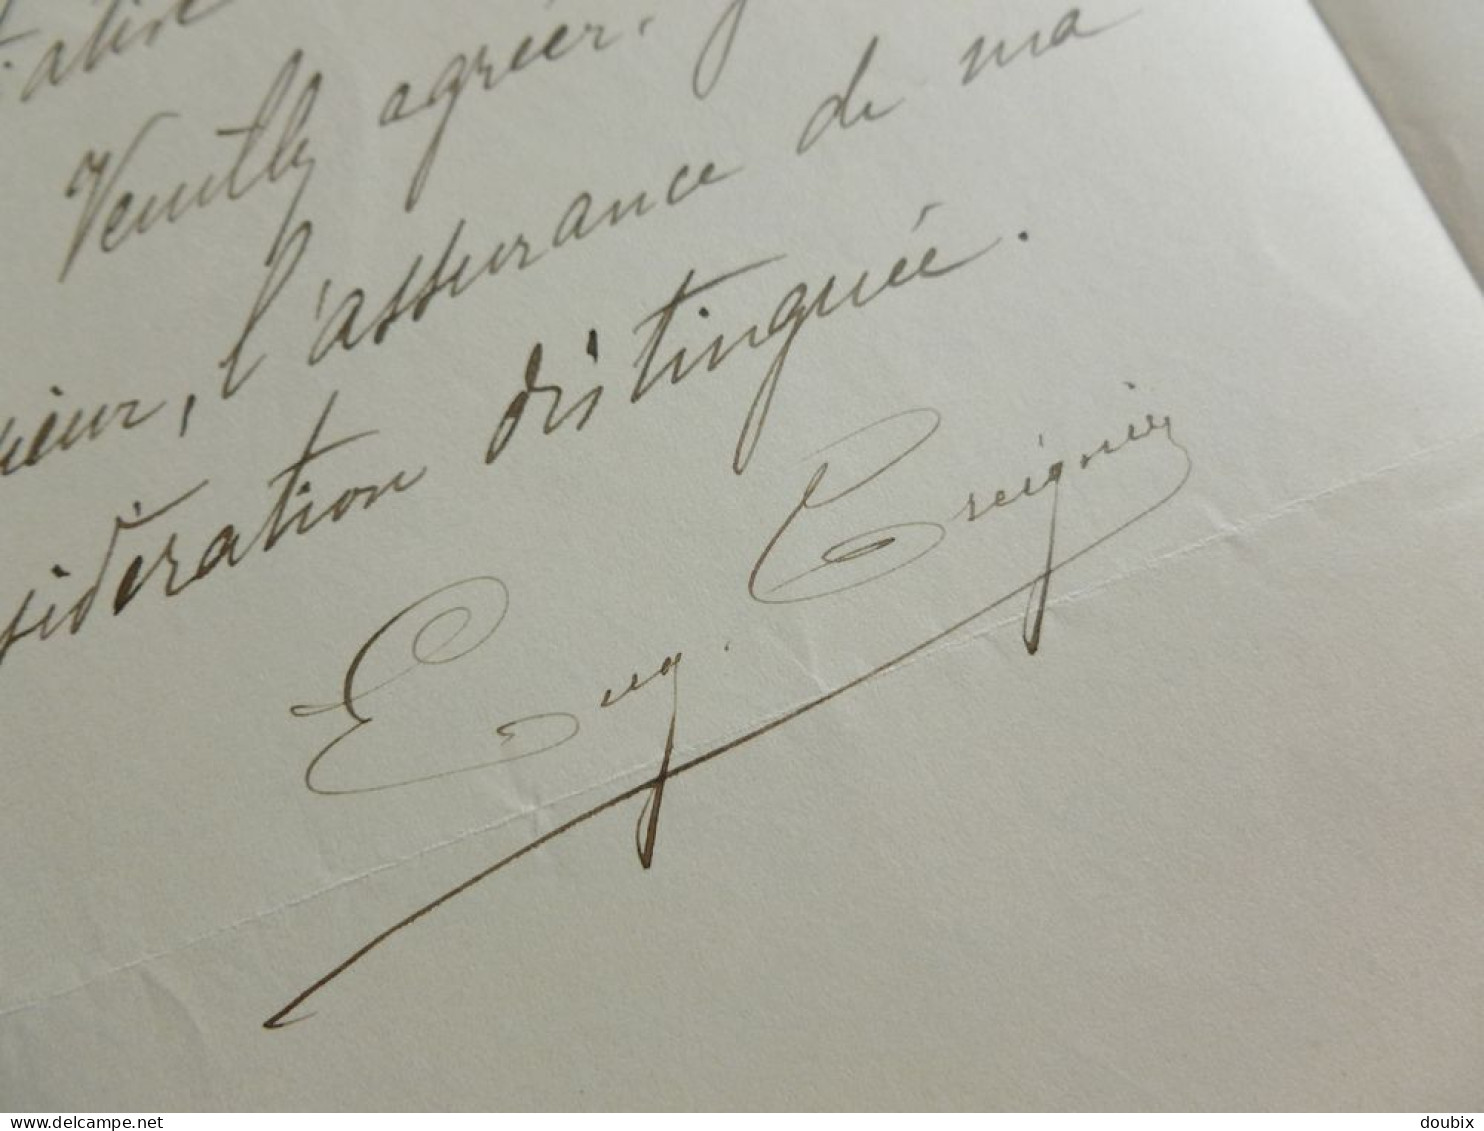 Veuilly agréer,
sieur, l'assurance de ma
sidération distinguée.
Eug. Creignier
www.delcampe.net
doubix